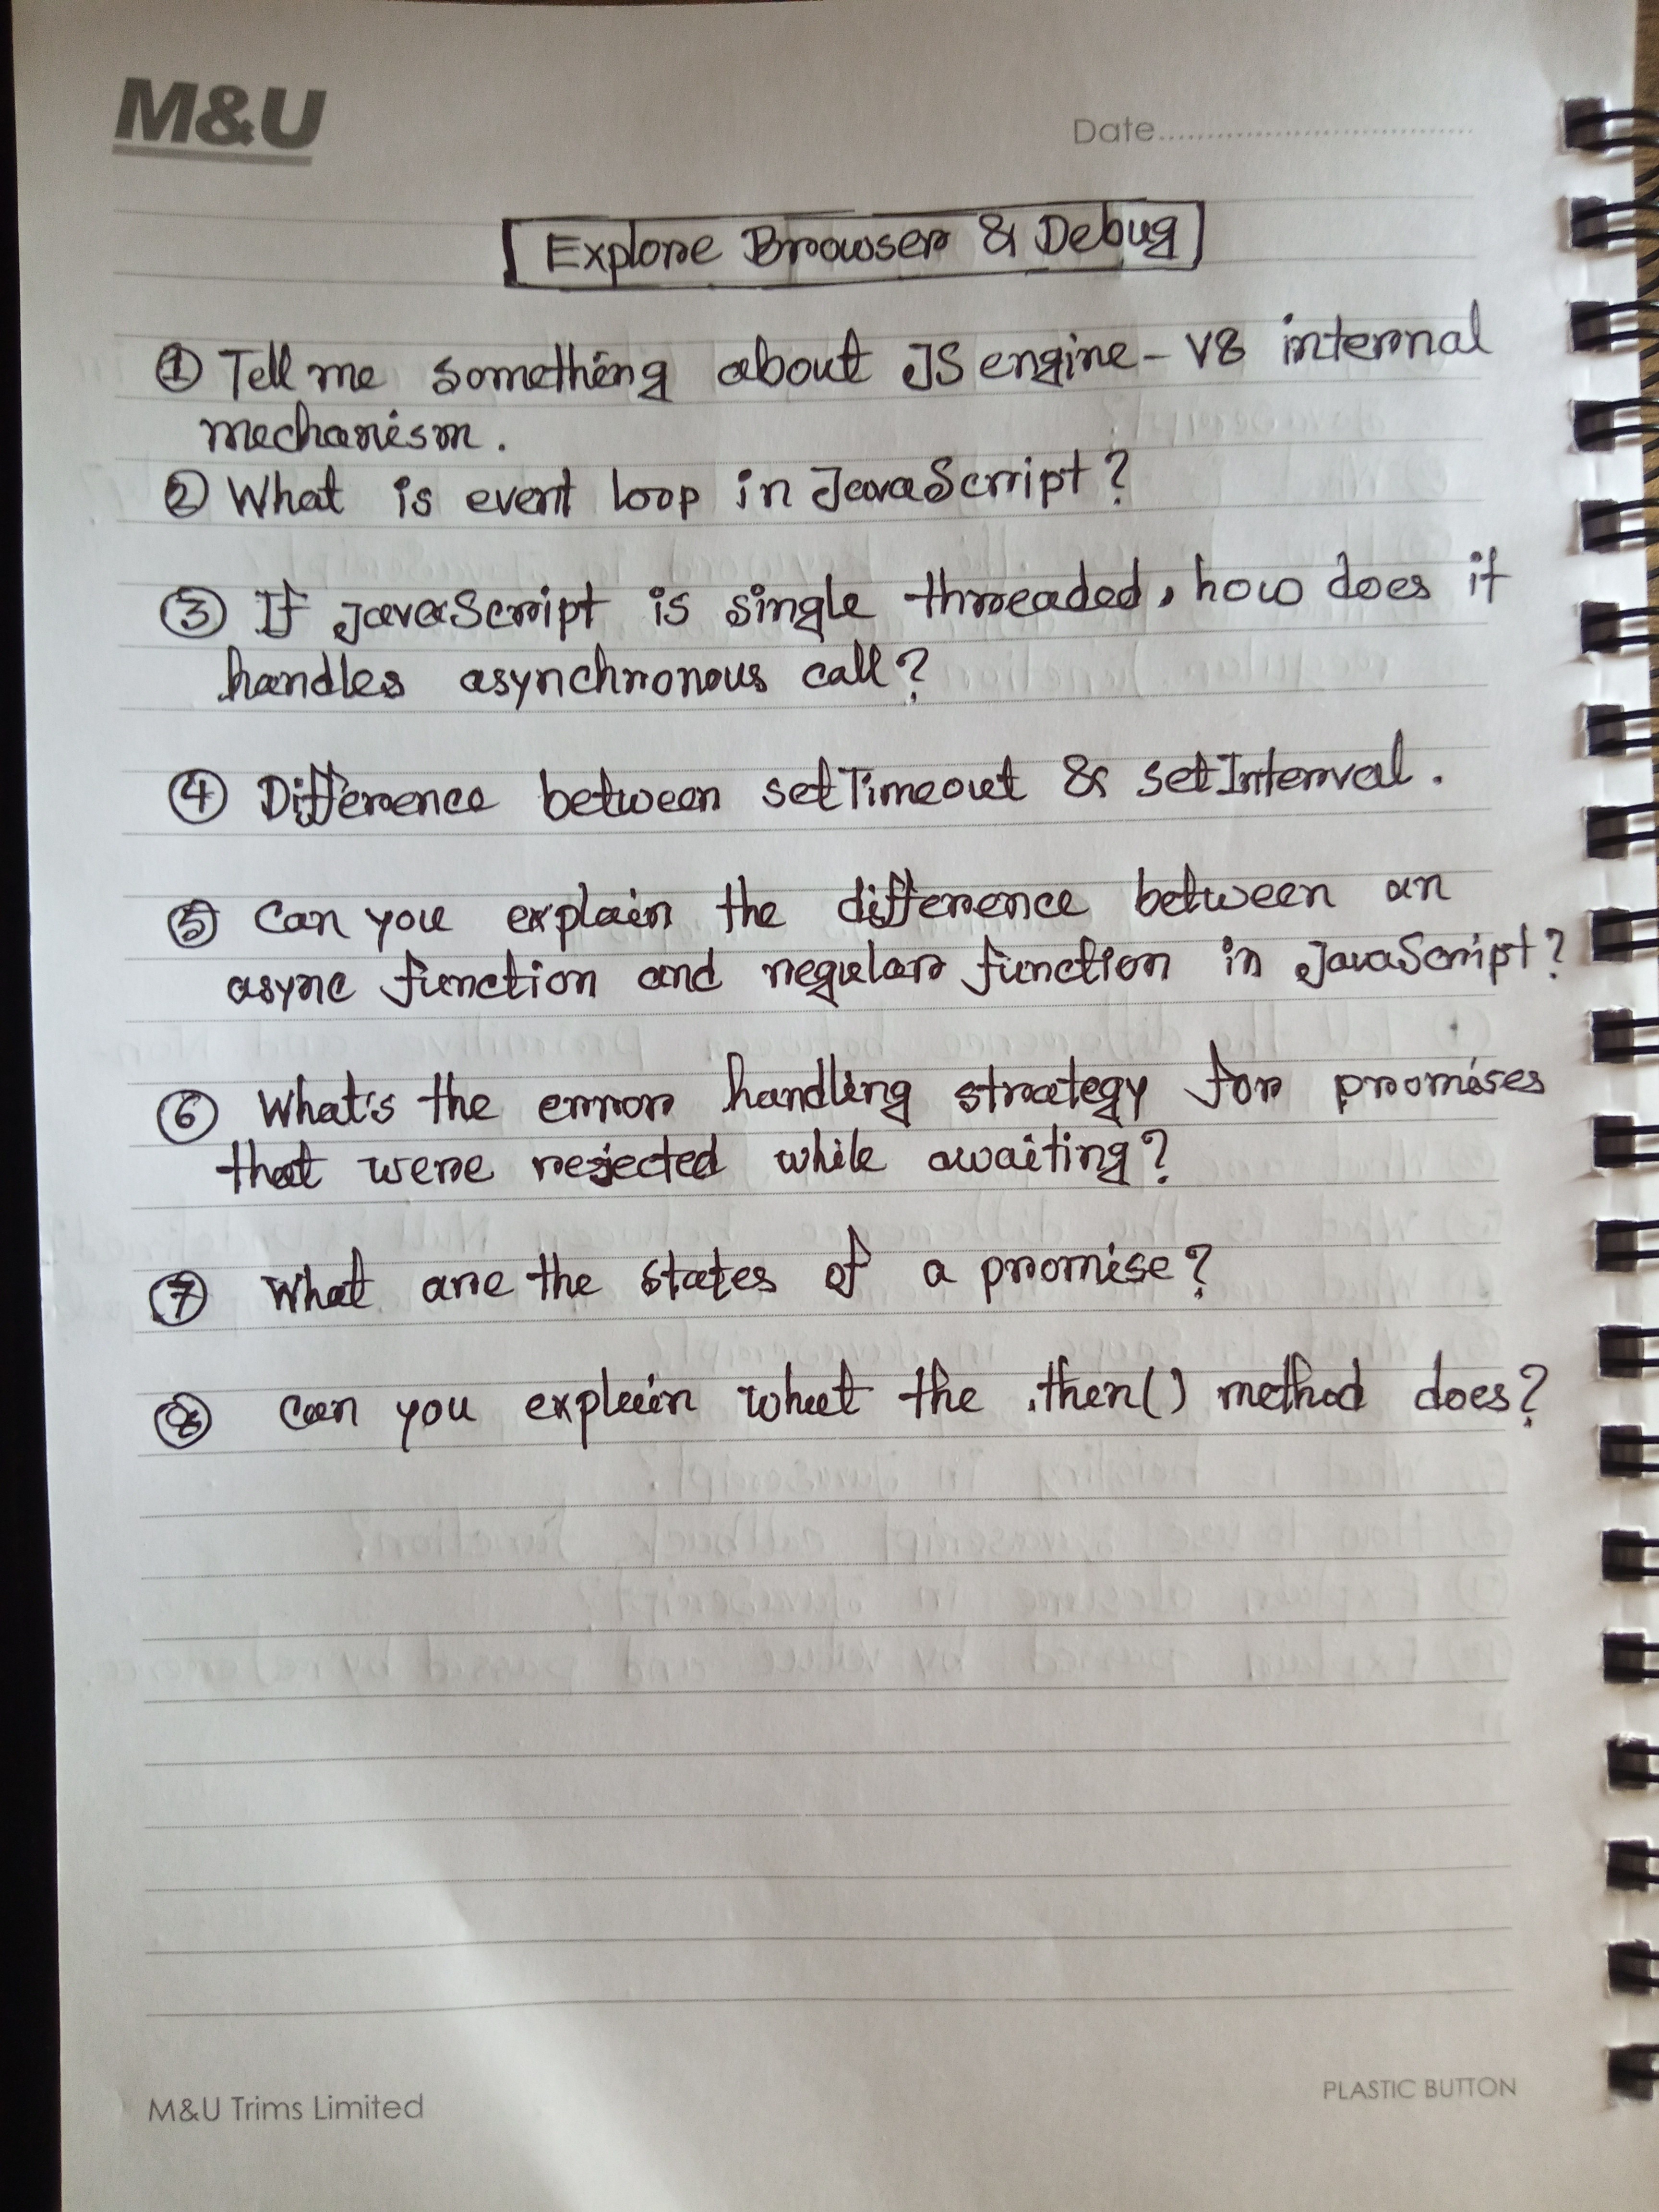 M&U
Date
Explore Browser & Debug
① Tell me something about JS engine - V8 internal
mechanism.
② What is event loop in JavaScript?
③ If JavaScript is single threaded, how does it
handles asynchronous call?
④ Difference between setTimeout & setInterval.
⑤ Can you explain the difference between an
async function and regular function in JavaScript?
⑥ What's the error handling strategy for promises
that were rejected while awaiting?
⑦ What are the states of a promise?
⑧ Can you explain what the .then() method does?
M&U Trims Limited
PLASTIC BUTTON